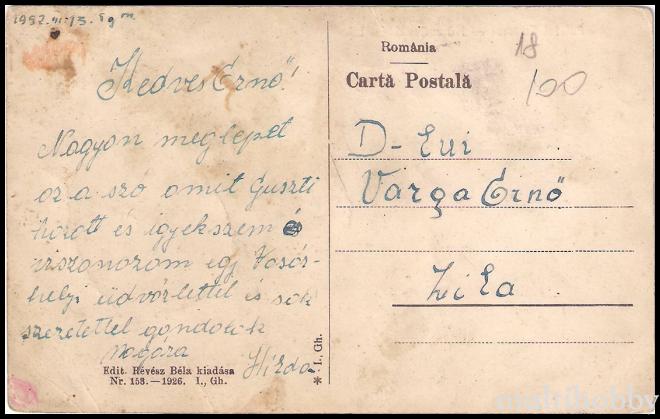 Kedves Ernő!
Nagyon meglepet
az a szó amit Guszti
hozott és igyekszem
viszonozom egy Vásár-
helyi üdvözlettel és sok
szeretettel gondolok
magára
Edit. Révész Béla kiadása
Nr. 158.—1926. I., Gh.
* I., Gh.
România
Cartă Postală
18
100
D-lui
Varga Ernő
Zila
multihobby